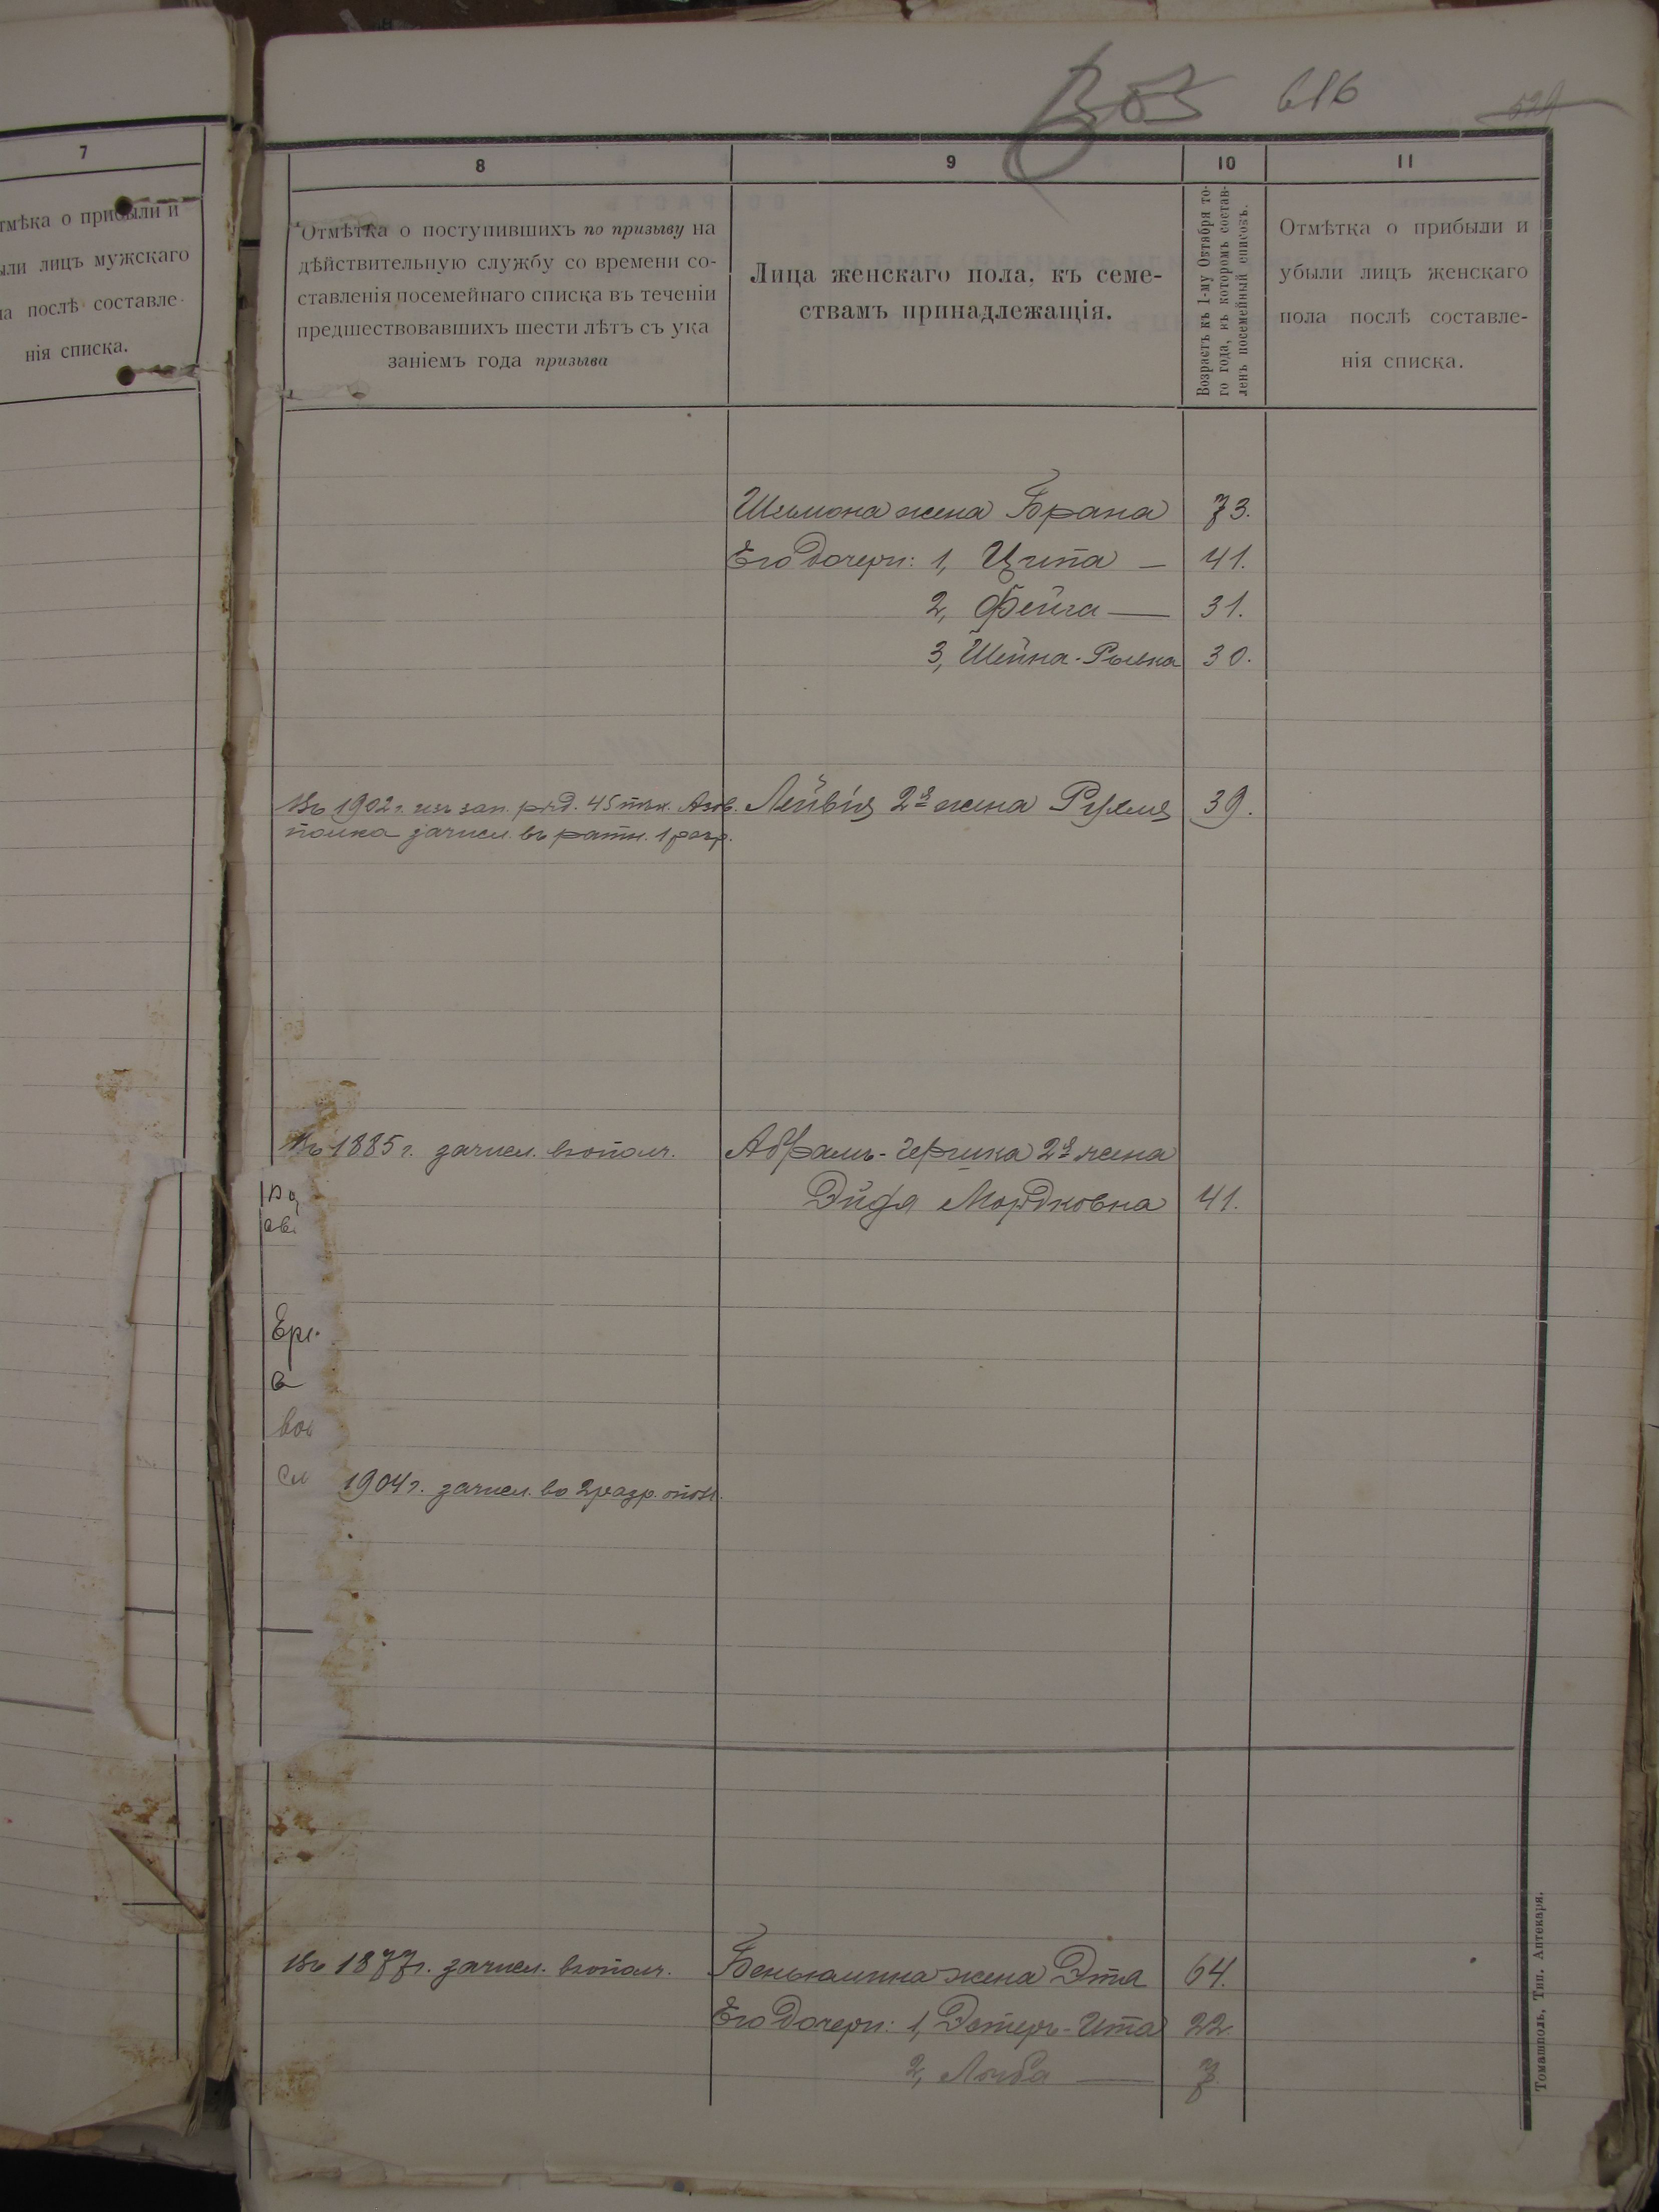 616
529
7
тмѣка о прибыли и
ыли лицъ мужскаго
ла послѣ составле-
нія списка.
8
9
10
11
Отмѣтка о поступившихъ по призыву на
дѣйствительную службу со времени со-
ставленія посемейнаго списка въ теченіи
предшествовавшихъ шести лѣтъ съ ука
заніемъ года призыва
Лица женскаго пола, къ семе-
ствамъ принадлежащія.
Возрастъ къ 1-му Октября то-
го года, въ которомъ состав-
ленъ посемейный списокъ.
Отмѣтка о прибыли и
убыли лицъ женскаго
пола послѣ составле-
нія списка.
Шлемона жена Брана 73.
Его дочери: 1, Ципа — 41.
2, Фейга — 31.
3, Шейна-Рывка 30.
Въ 1902 г. изъ зап. ряд. 45 пѣх. Азов. Лейвія 2я жена Рухля 39.
полка зачисл. въ ратн. 1 разр.
Въ 1885 г. зачисл. въ ополч. Абрамъ-Гершка 2я жена
Эйдя Мордковна 41.
Ері
а
вої
сл
1904 г. зачисл. во 2 разр. опол.
Въ 1877 г. зачисл. въ ополч. Беньюмина жена Эта 64.
Его дочери: 1, Эстеръ-Ита 22.
2, Люба — 7
Томашполь, Тип. Аптекаря.